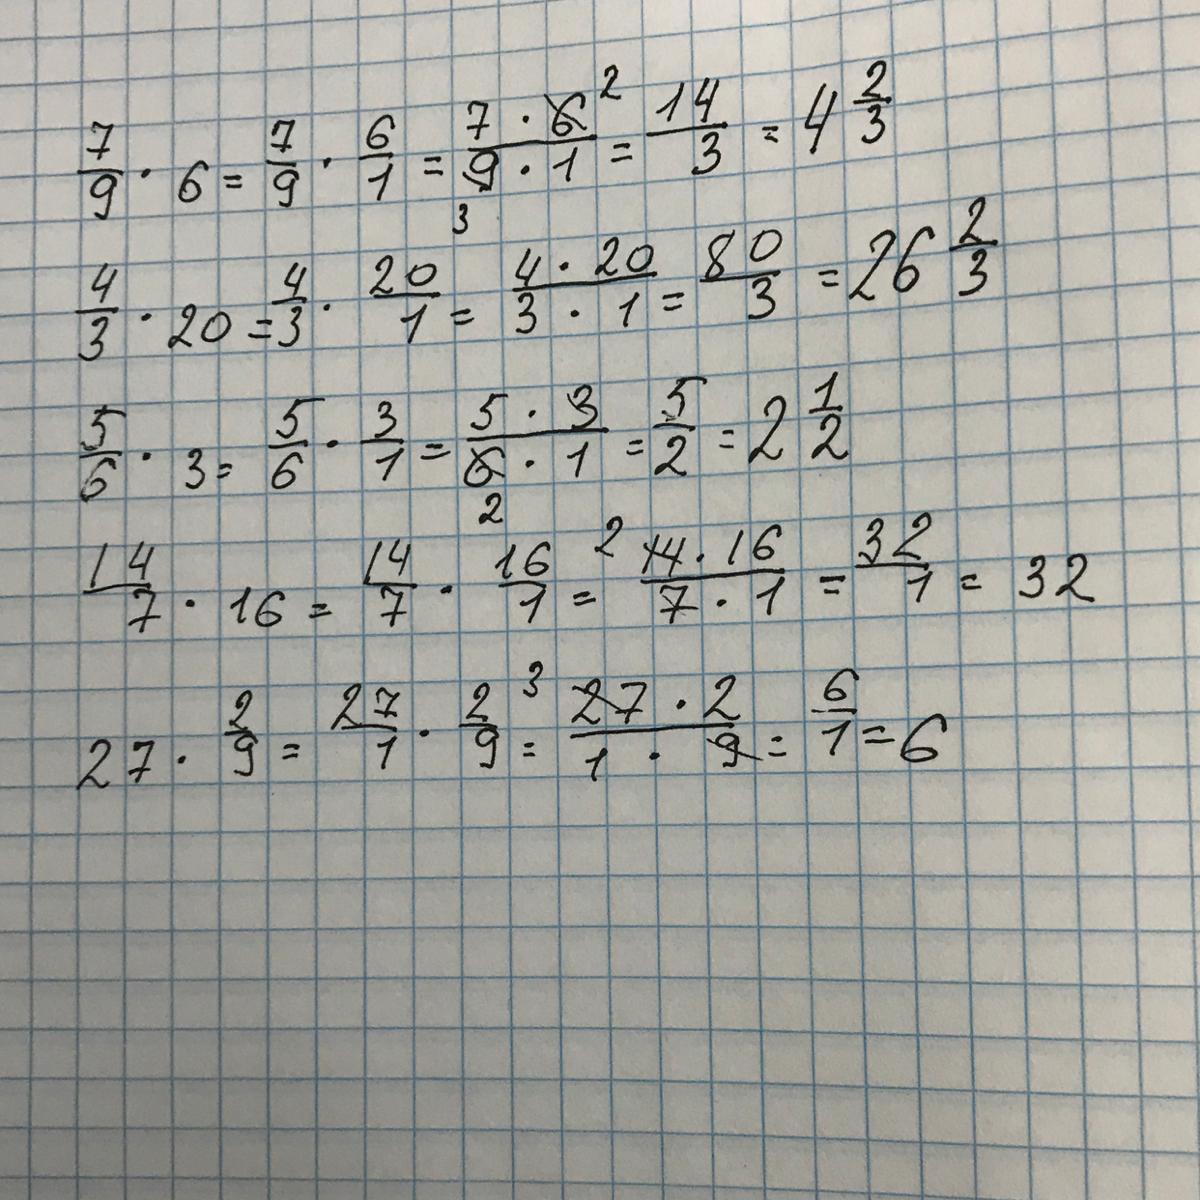 7/9 · 6 = 7/9 · 6/1 = 7 · 6 2 / 9 · 1 3 = 14/3 = 4 2/3
4/3 · 20 = 4/3 · 20/1 = 4 · 20 / 3 · 1 = 80/3 = 26 2/3
5/6 · 3 = 5/6 · 3/1 = 5 · 3 / 6 · 1 2 = 5/2 = 2 1/2
14/7 · 16 = 14/7 · 16/1 = 2 14 · 16 / 7 · 1 = 32/1 = 32
27 · 2/9 = 27/1 · 2/9 = 3 27 · 2 / 1 · 9 = 6/1 = 6